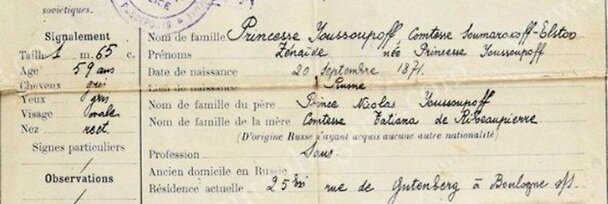 soviétiques.
POLICE
Signalement
Taille 1 m. 65 c.
Age 59 ans
Cheveux gris
Yeux gris
Visage ovale
Nez rect.
Signes particuliers
Observations
Nom de famille Princesse Youssoupoff Comtesse Soumarokoff-Elston
Prénoms Zénaïde née Princesse Youssoupoff
Date de naissance 20 Septembre 1871.
Lieu de naissance Russie
Nom de famille du père Prince Nicolas Youssoupoff
Nom de famille de la mère Comtesse Tatiana de Ribeaupierre
(D'origine Russe n'ayant acquis aucune autre nationalité)
Profession Sans.
Ancien domicile en Russie
Résidence actuelle 25 bis rue de Gutenberg à Boulogne s/s.